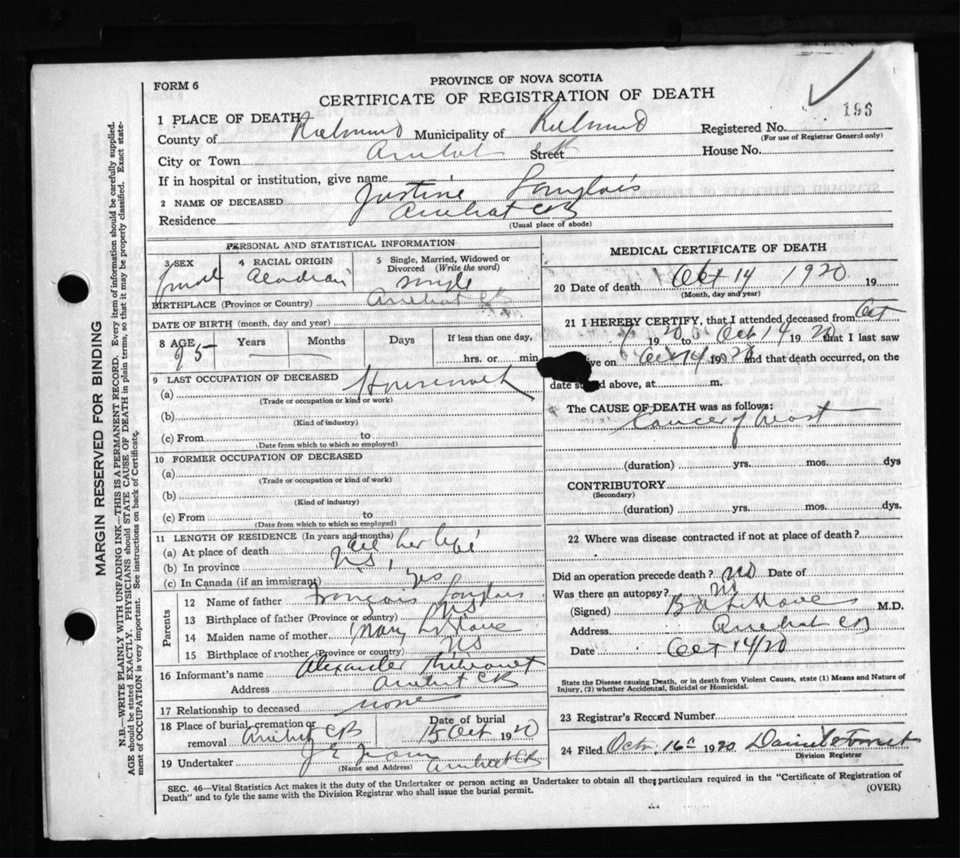 PROVINCE OF NOVA SCOTIA
FORM 6
CERTIFICATE OF REGISTRATION OF DEATH
193
1 PLACE OF DEATH
County of Richmond Municipality of Richmond Registered No.
(For use of Registrar General only)
City or Town Arichat Street House No.
If in hospital or institution, give name
2 NAME OF DECEASED Justine Langlois
Residence Arichat CB
(Usual place of abode)
PERSONAL AND STATISTICAL INFORMATION
3 SEX 4 RACIAL ORIGIN 5 Single, Married, Widowed or Divorced (Write the word)
Acadian single
BIRTHPLACE (Province or Country) Arichat CB
DATE OF BIRTH (month, day and year)
8 AGE Years Months Days If less than one day,
hrs. or min
9 LAST OCCUPATION OF DECEASED
(a) Housework
(Trade or occupation or kind or work)
(b)
(Kind of industry)
(c) From to
(Date from which to which so employed)
10 FORMER OCCUPATION OF DECEASED
(a)
(Trade or occupation or kind of work)
(b)
(Kind of industry)
(c) From to
(Date from which to which so employed)
11 LENGTH OF RESIDENCE (In years and months)
(a) At place of death all her life
(b) In province NS
(c) In Canada (if an immigrant) yes
Parents
12 Name of father François Langlois
13 Birthplace of father (Province or country) NS
14 Maiden name of mother Mary
15 Birthplace of mother (Province or country) NS
16 Informant's name Alexander
Address Arichat CB
17 Relationship to deceased none
18 Place of burial, cremation or removal Arichat CB Date of burial 15 Oct 1920
19 Undertaker J E Arichat CB
(Name and Address)
MEDICAL CERTIFICATE OF DEATH
20 Date of death Oct 14 1920 19
(Month, day and year)
21 I HEREBY CERTIFY, that I attended deceased from Oct
20 to Oct 14 19 20 that I last saw
ve on Oct 14 1920 and that death occurred, on the
date st d above, at m.
The CAUSE OF DEATH was as follows:
Cancer of
(duration) yrs. mos. dys
CONTRIBUTORY
(Secondary)
(duration) yrs. mos. dys.
22 Where was disease contracted if not at place of death?
Did an operation precede death? No Date of
Was there an autopsy? No
(Signed) B A LeBlanc M.D.
Address Arichat CB
Date Oct 14/20
State the Disease causing Death, or in death from Violent Causes, state (1) Means and Nature of
Injury, (2) whether Accidental, Suicidal or Homicidal.
23 Registrar's Record Number
24 Filed Octr. 16 1920
Division Registrar
SEC. 46—Vital Statistics Act makes it the duty of the Undertaker or person acting as Undertaker to obtain all the particulars required in the "Certificate of Registration of
Death" and to fyle the same with the Division Registrar who shall issue the burial permit. (OVER)
MARGIN RESERVED FOR BINDING
N.B.—WRITE PLAINLY WITH UNFADING INK—THIS IS A PERMANENT RECORD. Every item of information should be carefully supplied.
AGE should be stated EXACTLY. PHYSICIANS should STATE CAUSE OF DEATH in plain terms, so that it may be properly classified. Exact statement of OCCUPATION is very important. See instructions on back of Certificate.